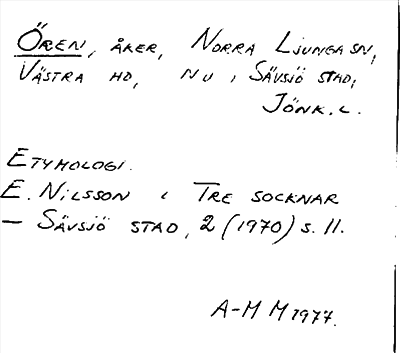 Ören, åker, Norra Ljunga sn,
Västra hd, nu i Sävsjö stad,
Jönk. l.
Etymologi.
E. Nilsson i Tre socknar
– Sävsjö stad, 2 (1970) s. 11.
A-M M 1977.